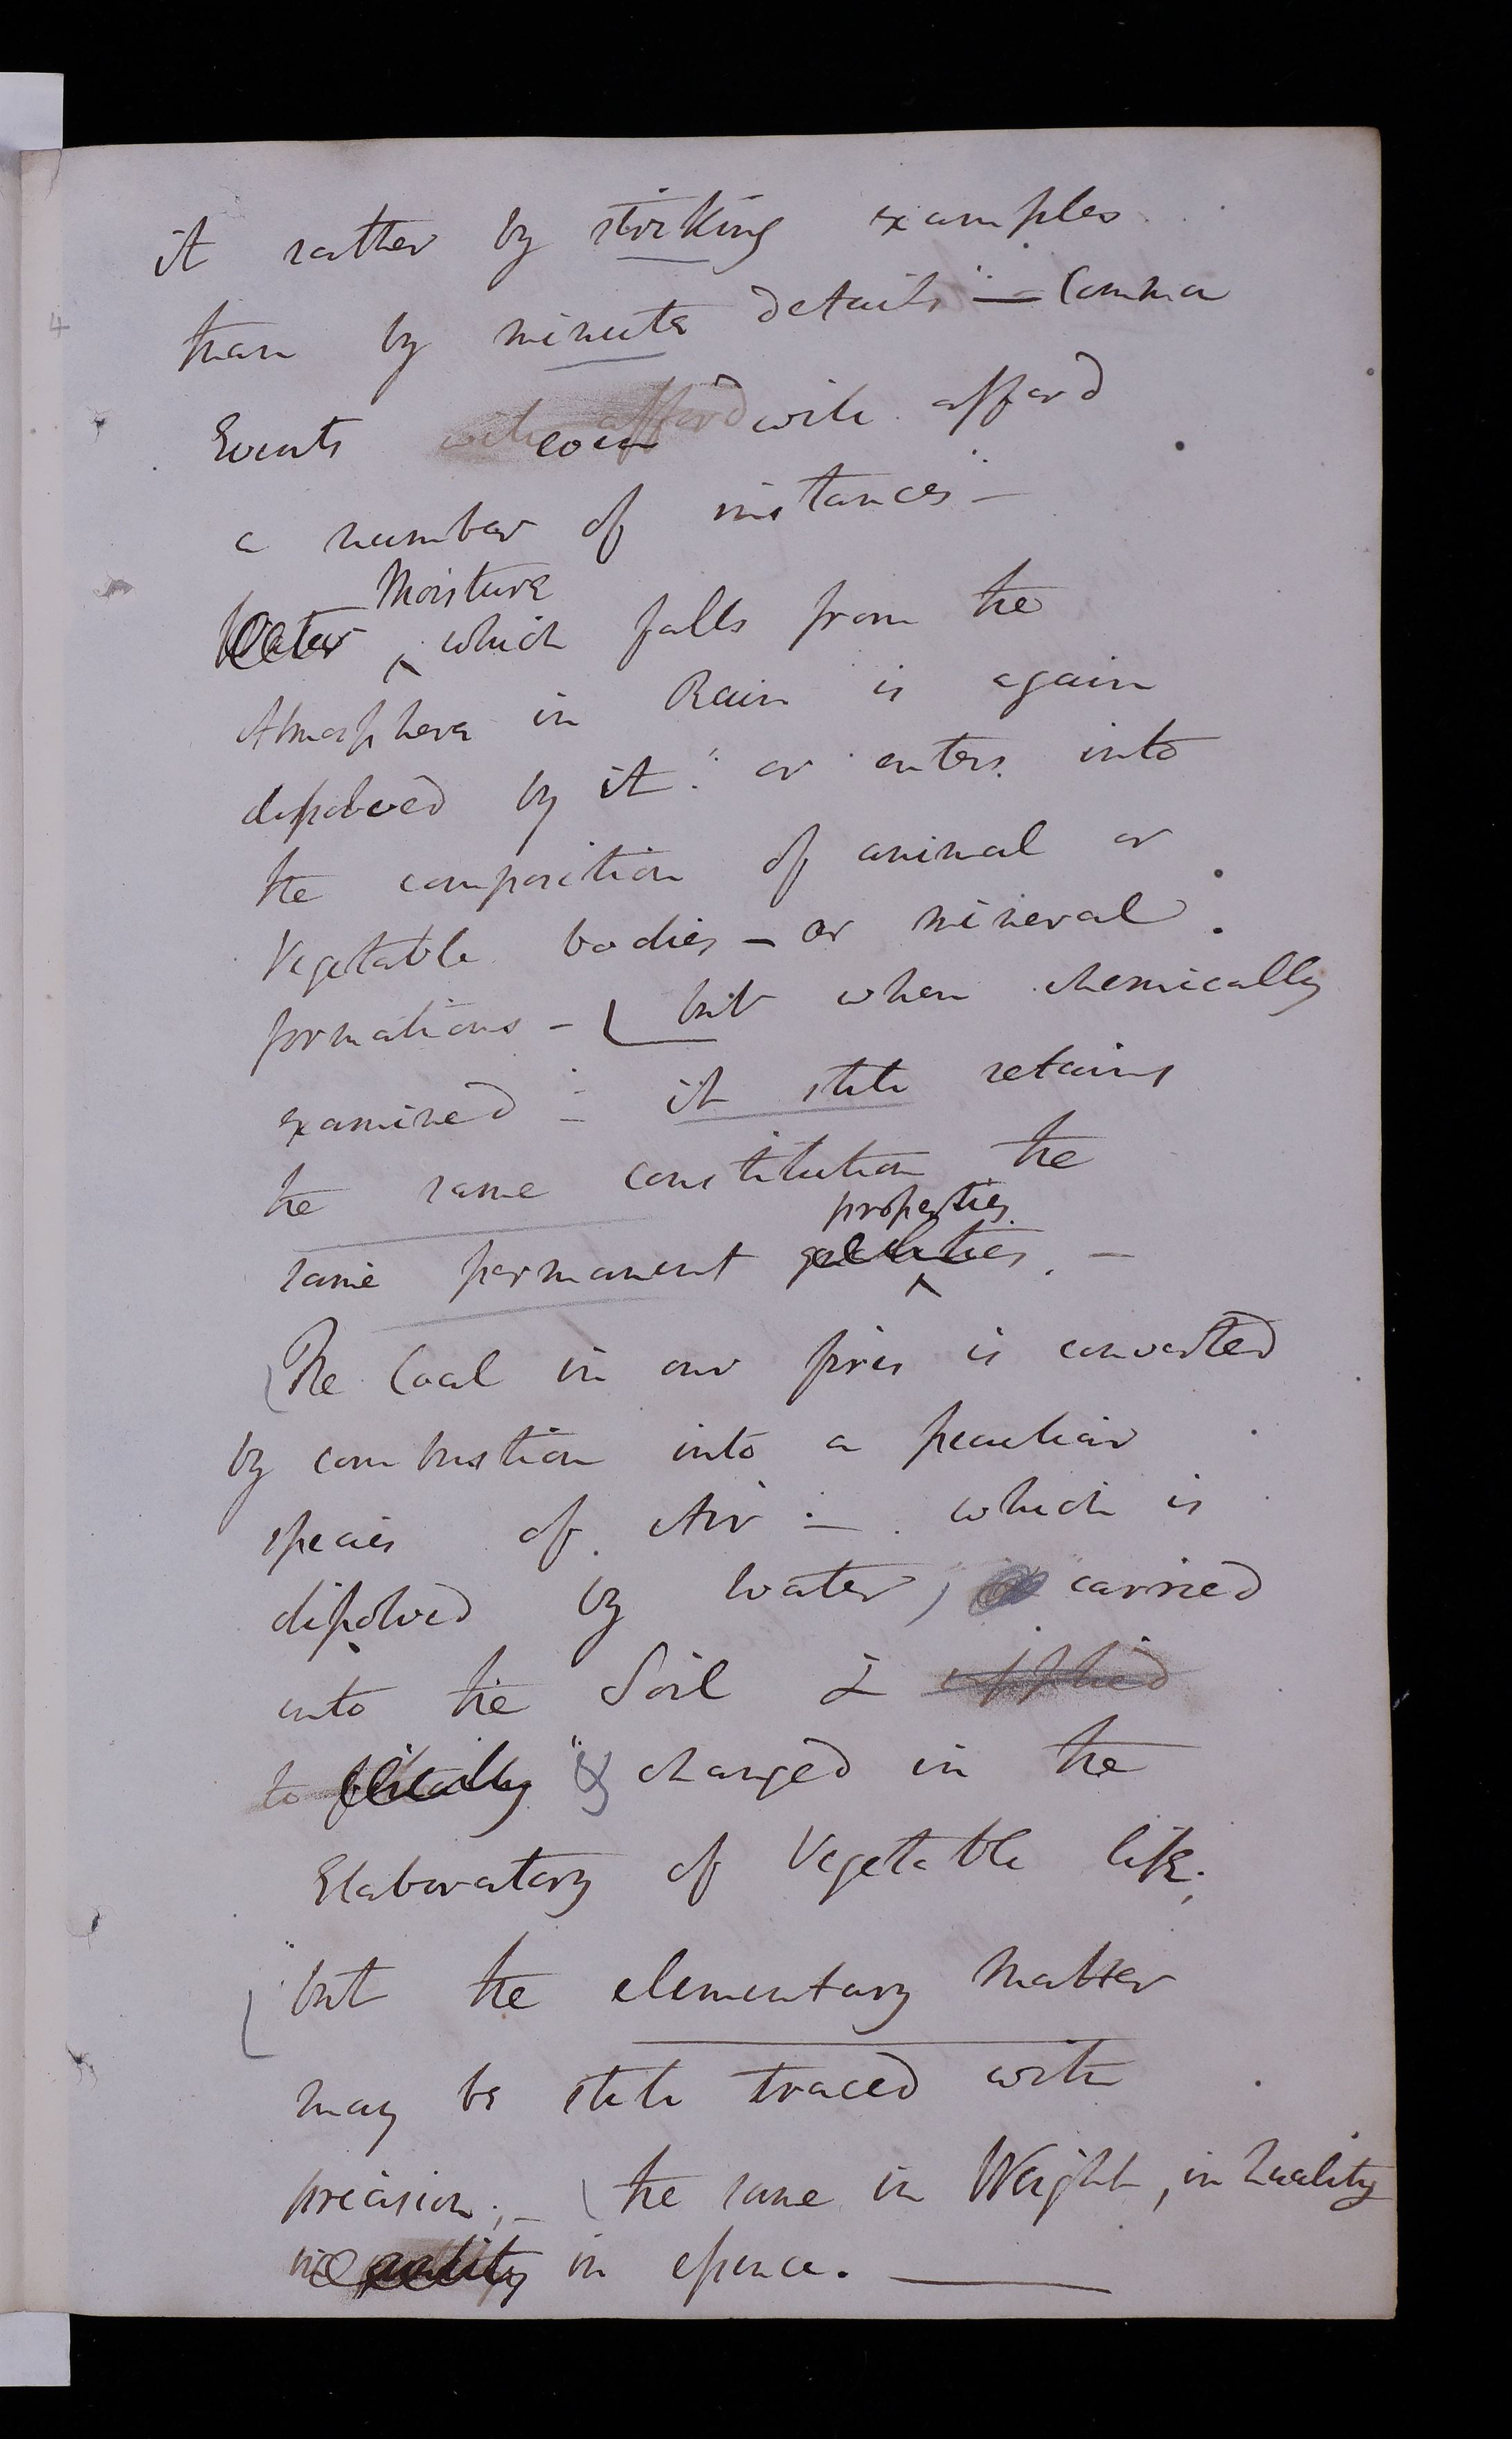 it rather by striking examples
than by minute details — Common
Events will afford even will afford
a number of instances —
Moisture
Water ^ which falls from the
Atmosphere in Rain is again
dissolved by it or enters into
the composition of animal or
Vegetable bodies — or mineral
formations — but when chemically
examined — it still retains
the same constitution the
properties
same permanent qualities. —
The Coal in our fires is converted
by combustion into a peculiar
species of Air :— which is
dissolved by water, carried
into the Soil & applied
to & changed in the
Elaboratory of Vegetable life;
but the elementary Matter
may be still traced with
precision; — the same in Weight, in quality
in quality in essence. —
4